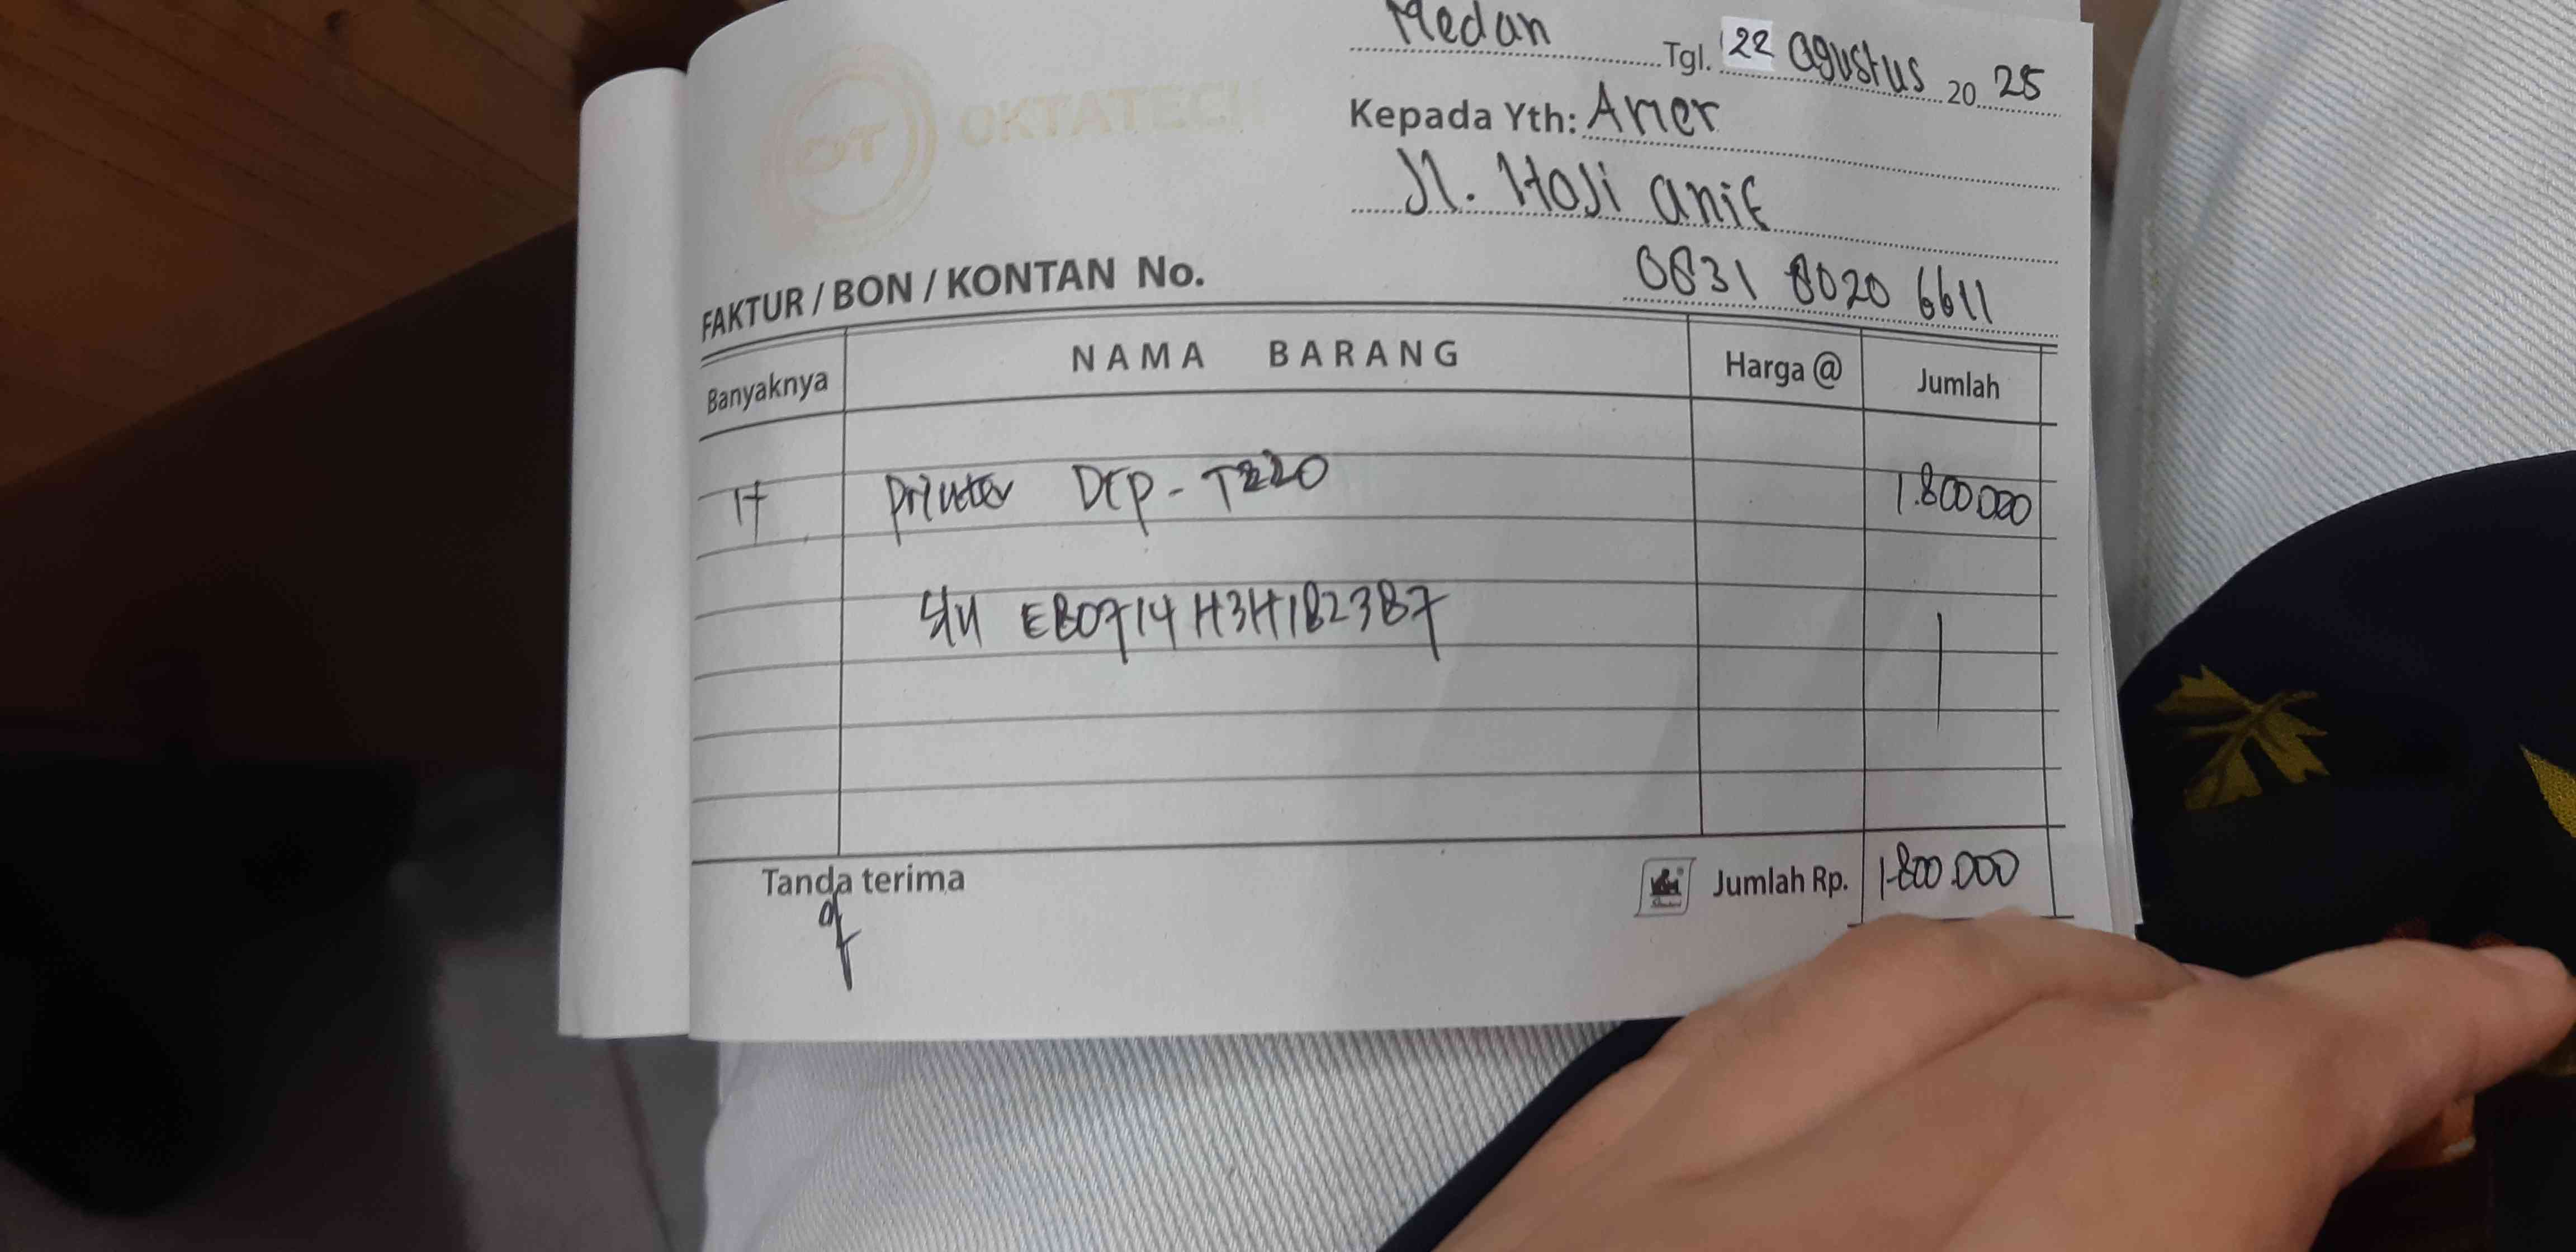 Medan Tgl. 22 agustus 2025
OKTATECH
OT
Kepada Yth: Aner
Jl. Haji anif
0831 8020 6611
FAKTUR / BON / KONTAN No.
Banyaknya NAMA BARANG Harga @ Jumlah
Printer DCP-T220 1.800.000
S/N EB0714H3H182387
Tanda terima Jumlah Rp. 1.800.000